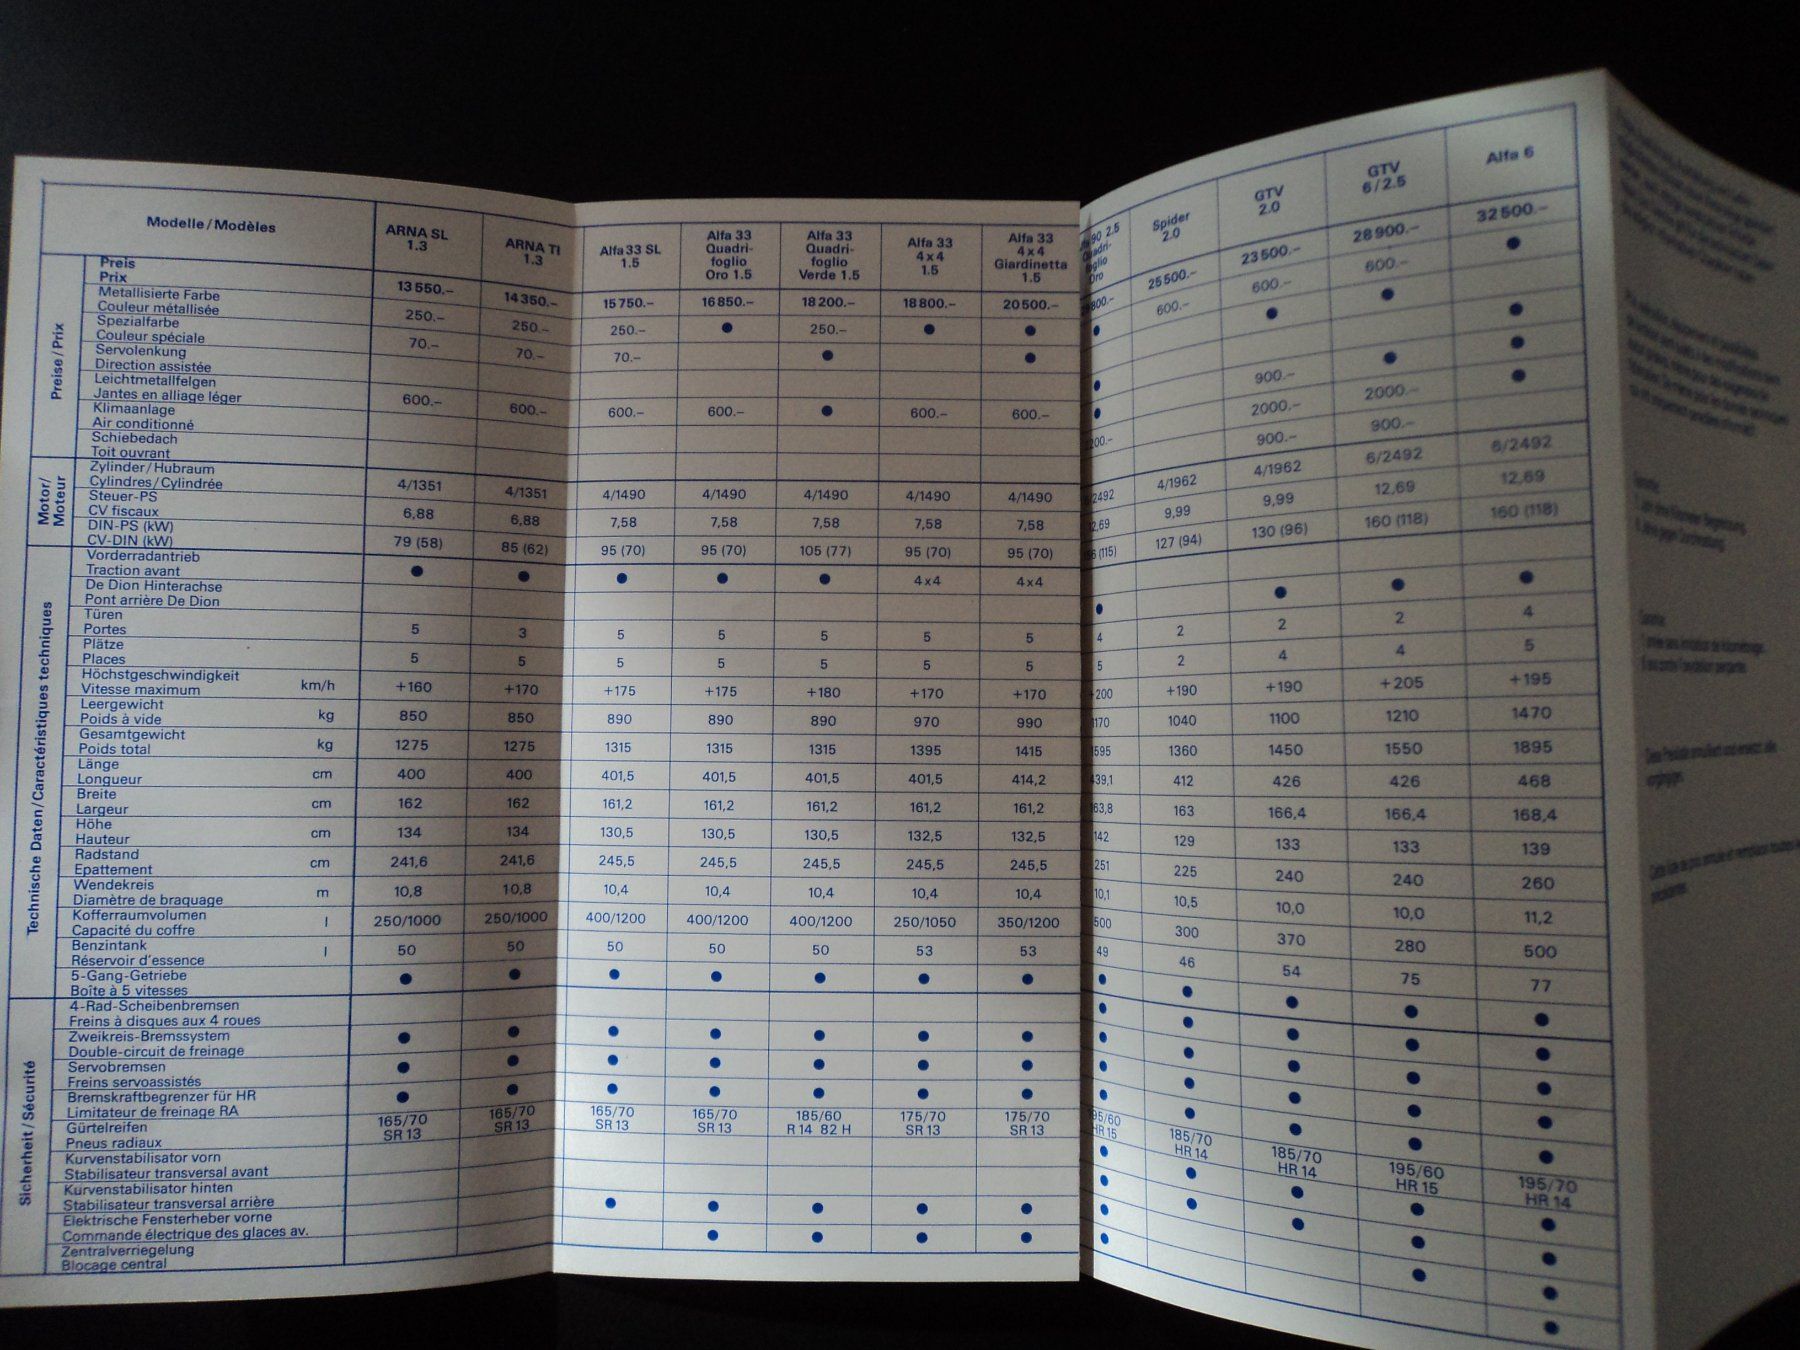 Modelle / Modèles ARNA SL 1.3 ARNA TI 1.3 Alfa 33 SL 1.5 Alfa 33 Quadri-foglio Oro 1.5 Alfa 33 Quadri-foglio Verde 1.5 Alfa 33 4x4 1.5 Alfa 33 4x4 Giardinetta 1.5 90 2.5 Oro Spider 2.0 GTV 2.0 GTV 6/2.5 Alfa 6
Preise / Prix
Preis
Prix 13 550.– 14 350.– 15 750.– 16 850.– 18 200.– 18 800.– 20 500.– 25 500.– 23 500.– 28 900.– 32 500.–
Metallisierte Farbe
Couleur métallisée 250.– 250.– 250.– ● 250.– ● ● ● 600.– 600.– 600.– ●
Spezialfarbe
Couleur spéciale 70.– 70.– 70.– ● ● ● ●
Servolenkung
Direction assistée ● ●
Leichtmetallfelgen
Jantes en alliage léger 600.– 600.– 600.– 600.– ● 600.– 600.– ● 900.– ● ●
Klimaanlage
Air conditionné 2000.– 2000.– ●
Schiebedach
Toit ouvrant 900.– 900.–
Motor/ Moteur
Zylinder / Hubraum
Cylindres / Cylindrée 4/1351 4/1351 4/1490 4/1490 4/1490 4/1490 4/1490 4/1962 4/1962 6/2492 6/2492
Steuer-PS
CV fiscaux 6,88 6,88 7,58 7,58 7,58 7,58 7,58 9,99 9,99 12,69 12,69
DIN-PS (kW)
CV-DIN (kW) 79 (58) 85 (62) 95 (70) 95 (70) 105 (77) 95 (70) 95 (70) 127 (94) 130 (96) 160 (118) 160 (118)
Technische Daten / Caractéristiques techniques
Vorderradantrieb
Traction avant ● ● ● ● ● 4x4 4x4
De Dion Hinterachse
Pont arrière De Dion ● ● ● ●
Türen
Portes 5 3 5 5 5 5 5 4 2 2 2 4
Plätze
Places 5 5 5 5 5 5 5 5 2 4 4 5
Höchstgeschwindigkeit
Vitesse maximum km/h +160 +170 +175 +175 +180 +170 +170 +200 +190 +190 +205 +195
Leergewicht
Poids à vide kg 850 850 890 890 890 970 990 1170 1040 1100 1210 1470
Gesamtgewicht
Poids total kg 1275 1275 1315 1315 1315 1395 1415 1595 1360 1450 1550 1895
Länge
Longueur cm 400 400 401,5 401,5 401,5 401,5 414,2 439,1 412 426 426 468
Breite
Largeur cm 162 162 161,2 161,2 161,2 161,2 161,2 163,8 163 166,4 166,4 168,4
Höhe
Hauteur cm 134 134 130,5 130,5 130,5 132,5 132,5 142 129 133 133 139
Radstand
Epattement cm 241,6 241,6 245,5 245,5 245,5 245,5 245,5 251 225 240 240 260
Wendekreis
Diamètre de braquage m 10,8 10,8 10,4 10,4 10,4 10,4 10,4 10,1 10,5 10,0 10,0 11,2
Kofferraumvolumen
Capacité du coffre l 250/1000 250/1000 400/1200 400/1200 400/1200 250/1050 350/1200 500 300 370 280 500
Benzintank
Réservoir d'essence l 50 50 50 50 50 53 53 49 46 54 75 77
5-Gang-Getriebe
Boîte à 5 vitesses ● ● ● ● ● ● ● ● ● ● ● ●
Sicherheit / Sécurité
4-Rad-Scheibenbremsen
Freins à disques aux 4 roues ● ● ● ● ●
Zweikreis-Bremssystem
Double-circuit de freinage ● ● ● ● ● ● ● ● ● ● ● ●
Servobremsen
Freins servoassistés ● ● ● ● ● ● ● ● ● ● ● ●
Bremskraftbegrenzer für HR
Limitateur de freinage RA ● ● ● ● ● ● ● ● ● ● ● ●
Gürtelreifen
Pneus radiaux 165/70 SR 13 165/70 SR 13 165/70 SR 13 165/70 SR 13 185/60 R 14 82 H 175/70 SR 13 175/70 SR 13 HR 15 185/70 HR 14 185/70 HR 14 195/60 HR 15 195/70 HR 14
Kurvenstabilisator vorn
Stabilisateur transversal avant ● ● ● ● ●
Kurvenstabilisator hinten
Stabilisateur transversal arrière ● ● ● ● ●
Elektrische Fensterheber vorne
Commande électrique des glaces av. ● ● ● ● ● ● ● ●
Zentralverriegelung
Blocage central ● ● ● ● ● ●